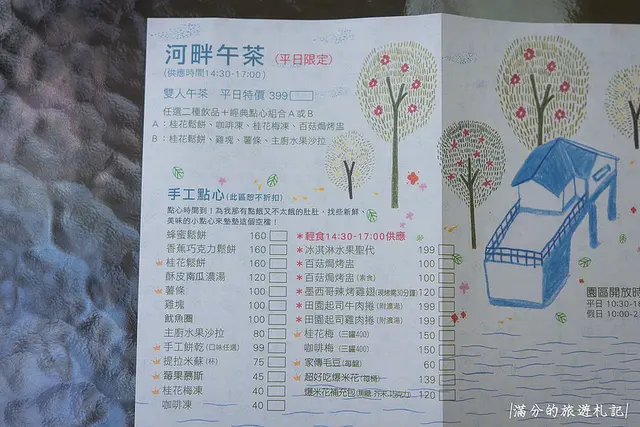 河畔午茶 (平日限定)
(供應時間14:30-17:00)
雙人午茶 平日特價 399
任選二種飲品+經典點心組合A或B
A：桂花鬆餅、咖啡凍、桂花梅凍、百菇焗烤盅
B：桂花鬆餅、雞塊、薯條、主廚水果沙拉
手工點心(此區恕不折扣)
點心時間到！為我那有點餓又不太餓的肚肚，找些新鮮、
美味的小點心來墊墊這個空檔！
蜂蜜鬆餅 160
香蕉巧克力鬆餅 160
桂花鬆餅 160
酥皮南瓜濃湯 120
薯條 100
雞塊 100
魷魚圈 100
主廚水果沙拉 80
手工餅乾(口味任選) 99
提拉米蘇(杯) 75
莓果慕斯 45
桂花梅凍 40
咖啡凍 40
*輕食14:30-17:00供應
*冰淇淋水果聖代 199
*百菇焗烤盅 100
*百菇焗烤盅(素食) 100
*墨西哥辣烤雞翅(現烤需30分鐘) 120
*田園起司牛肉捲(附濃湯) 199
*田園起司雞肉捲(附濃湯) 199
桂花梅(三罐400) 150
咖啡梅(三罐400) 150
家傳毛豆(每盤) 60
超好吃爆米花(每桶) 139
爆米花補充包(焦糖.芥末.巧克力) 120
園區開放時
平日 10:30-18
假日 10:00-2
|滿分的旅遊札記|